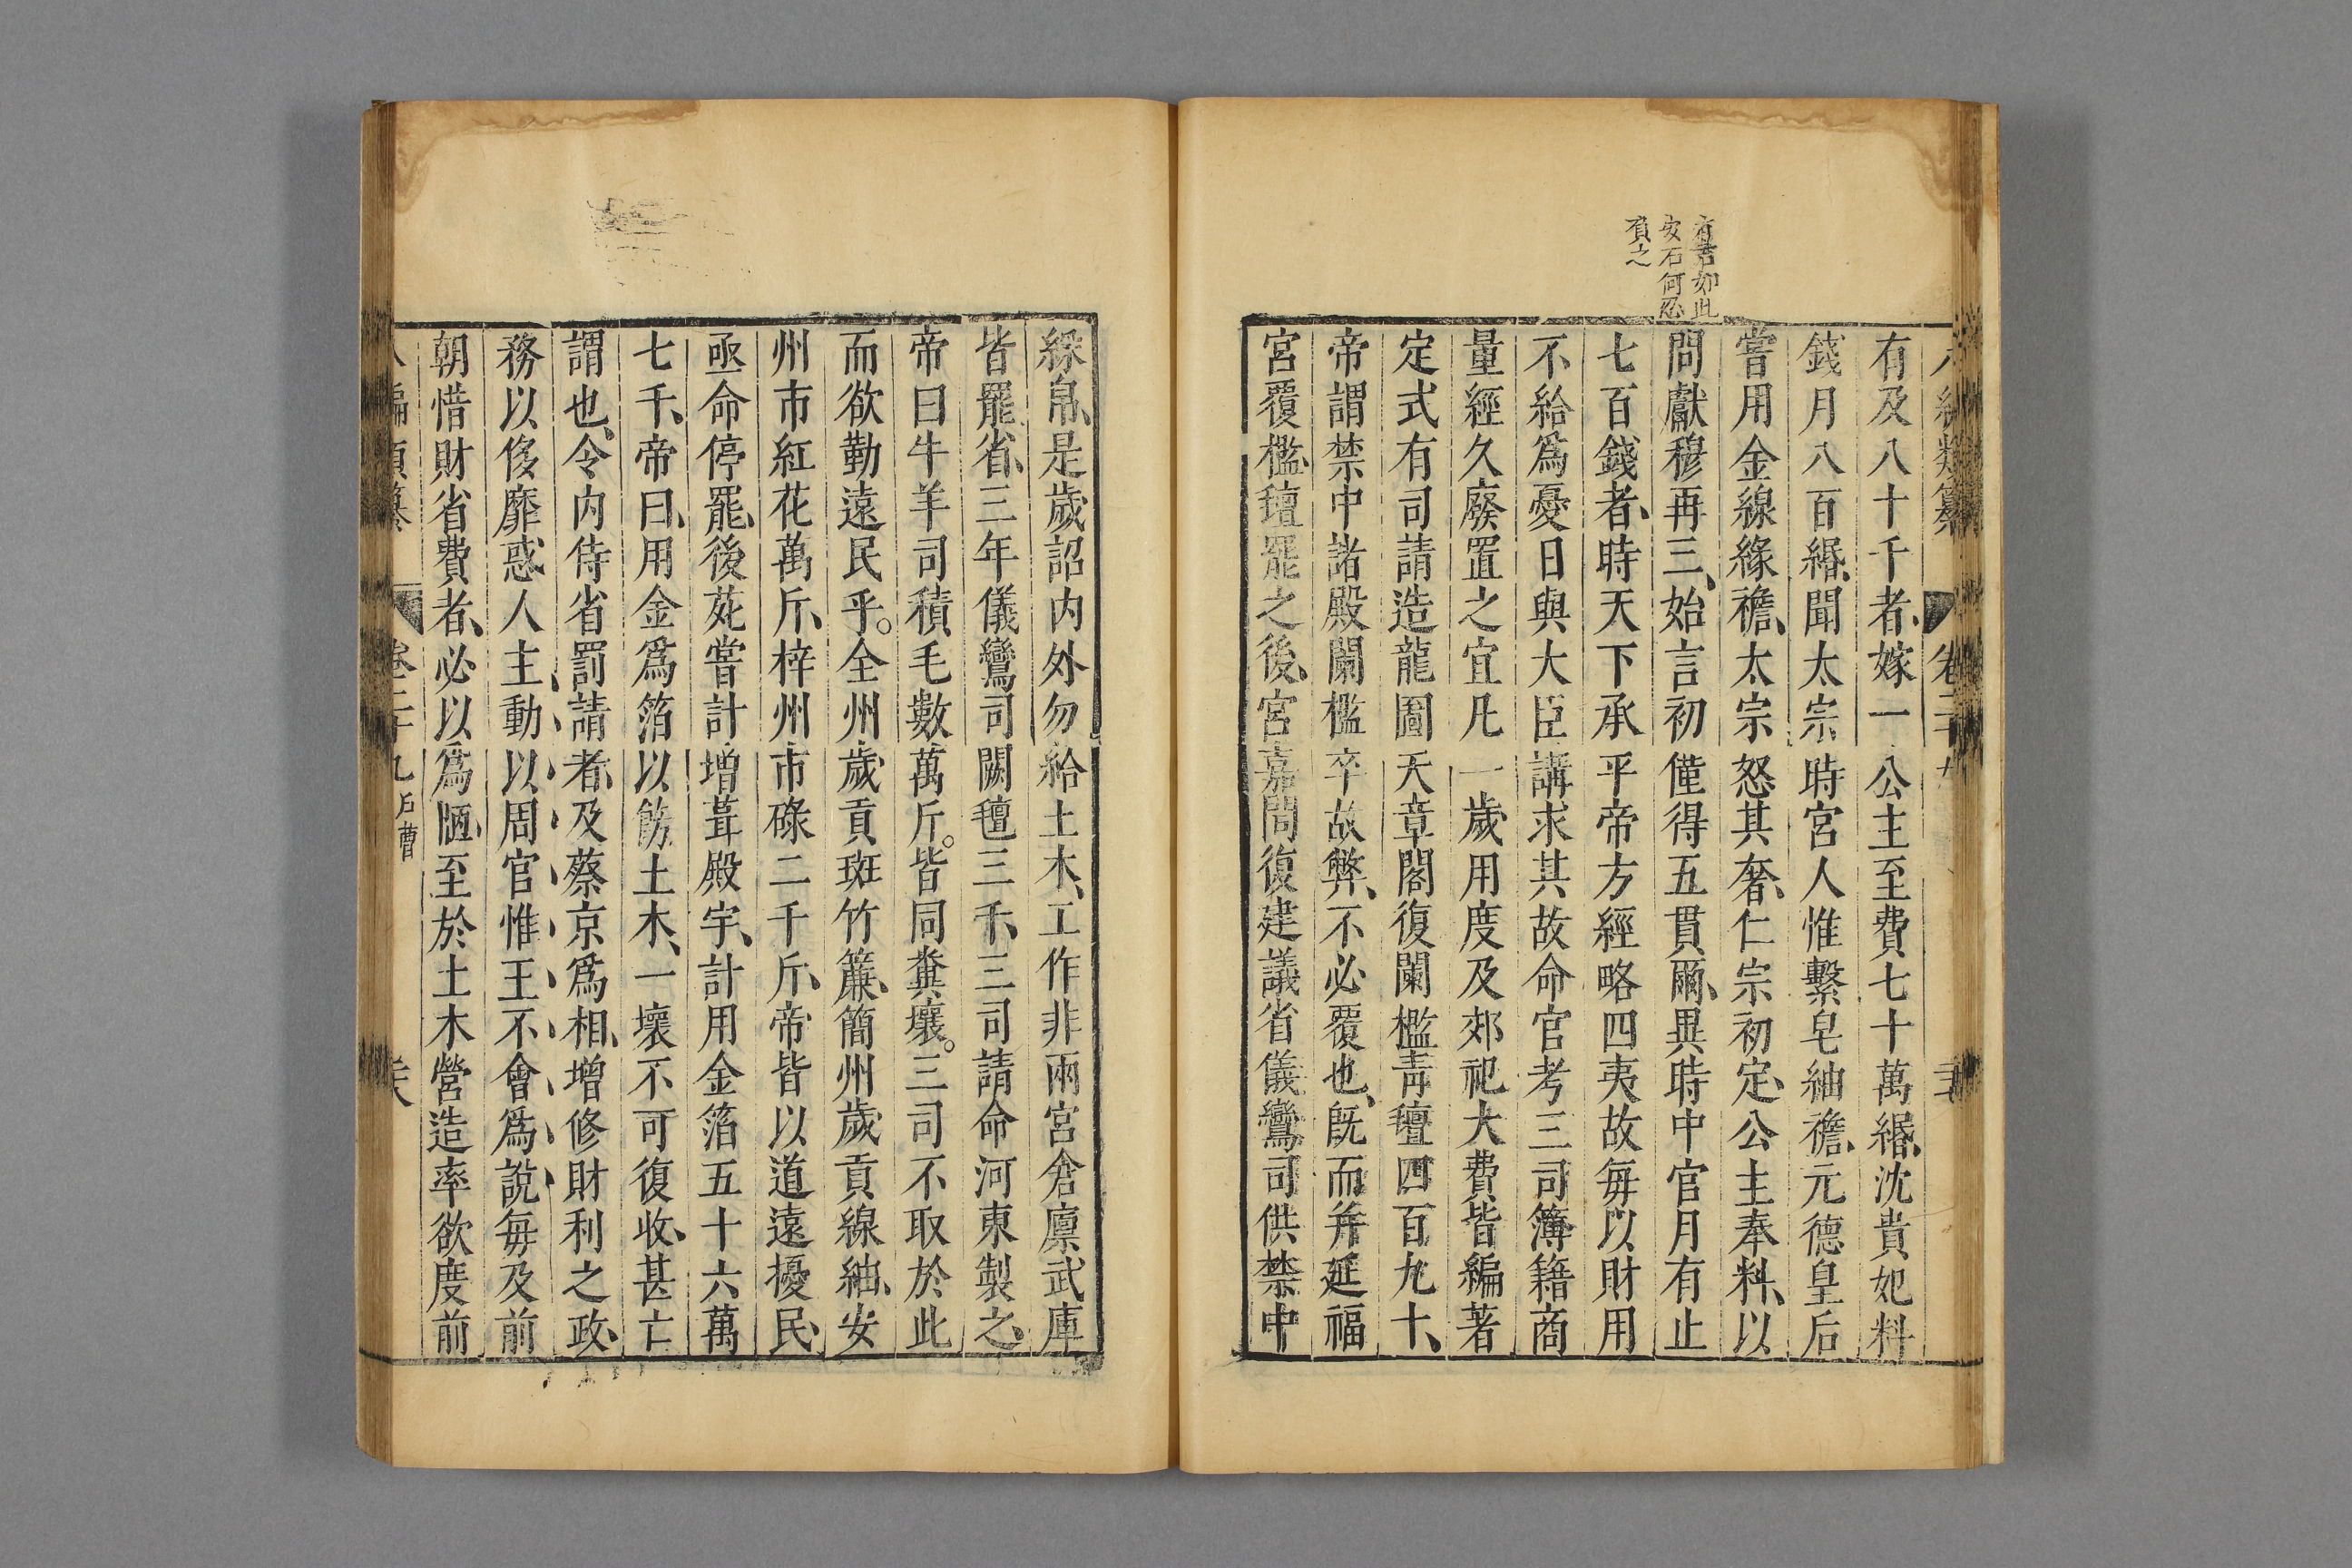 有及八十千者、嫁一公主至費七十萬緡、沈貴妃料
錢月八百緡、聞太宗時宮人惟繫皂紬襜、元德皇后
嘗用金線緣襜、太宗怒其奢、仁宗初定、公主奉料、以
問獻穆再三、始言初僅得五貫爾、異時中官月有止
七百錢者、時天下承平帝方經略四夷故每以財用
不給爲憂日與大臣講求其故命官考三司簿籍商
量經久廢置之宜凡一歲用度及郊祀大費皆編著
定式有司請造龍圖天章閣復闌檻青氊四百九十、
帝謂禁中諸殿闌檻卒故弊、不必覆也、旣而并延福
宮覆檻氊罷之後、宮嘉問復建議省儀鸞司供禁中
安石何忍
負之
綵帛、是歲詔内外勿給土木、工作非兩宮倉廪武庫
皆罷省、三年儀鸞司闕氊三千、三司請命河東製之、
帝曰牛羊司積毛數萬斤。皆同糞壤。三司不取於此
而欲勤遠民乎。全州歲貢斑竹簾、簡州歲貢線紬、安
州市紅花萬斤、梓州市碌二千斤、帝皆以道遠擾民、
亟命停罷、後苑嘗計增葺殿宇、計用金箔五十六萬
七千、帝曰、用金爲箔以飾土木、一壞不可復收、甚亡
謂也、令内侍省罰請者、及蔡京爲相、增修財利之政、
務以侈靡惑人主、動以周官惟王不會爲說每及前
朝惜財省費者、必以爲陋、至於土木營造率欲度前
卷二十九 戶曹